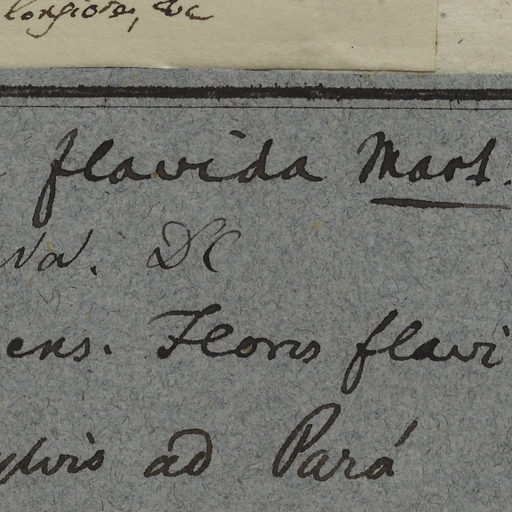 longiore, &c
flavida Mart.
va. DC
ens. Flores flavi
ylvis ad Pará